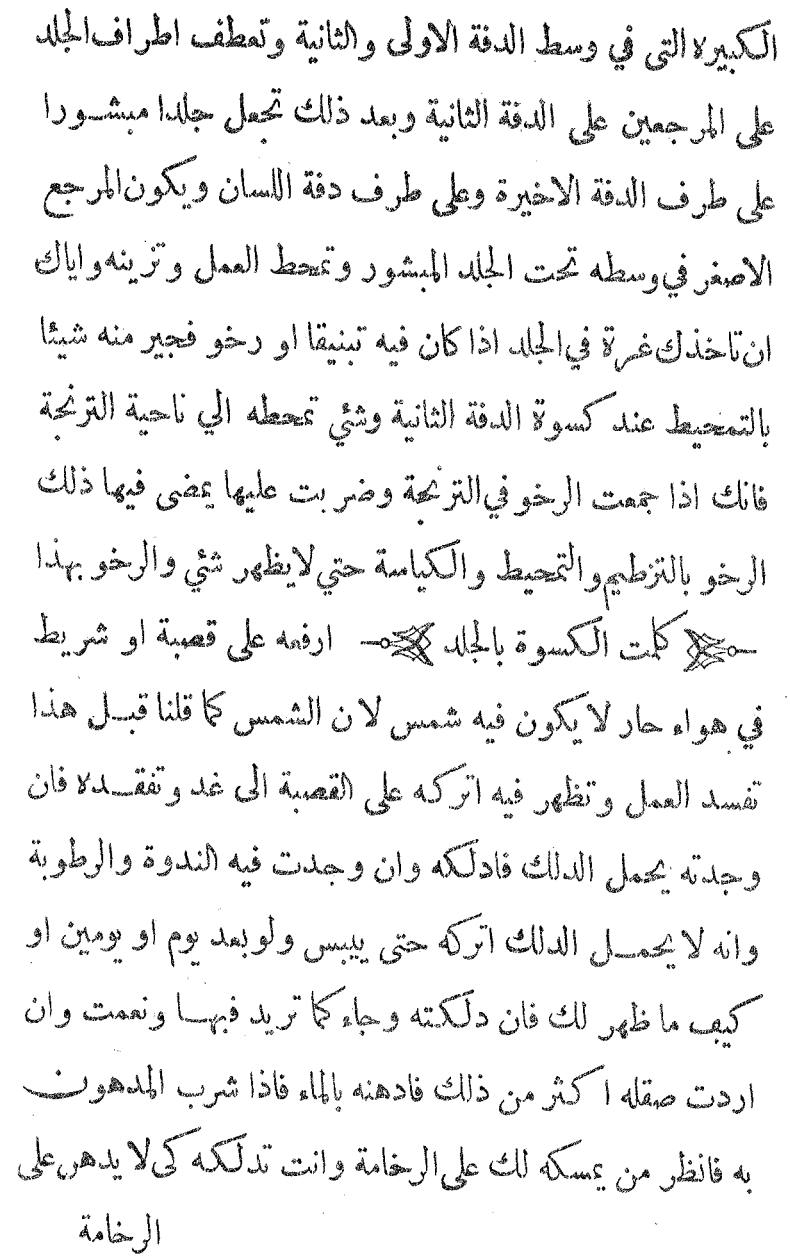 الكبيره التى في وسط الدفة الاولى والثانية وتعطف اطراف الجلد
على المرجعين على الدفة الثانية وبعد ذلك تجعل جلدا مبشورا
على طرف الدفة الاخيرة وعلى طرف دفة اللسان ويكون المرجع
الاصغر في وسطه تحت الجلد المبشور وتمحط العمل وتزينه واياك
ان تاخذك غرة في الجلد اذا كان فيه تبنيقا او رخو فجير منه شيئا
بالتمحيط عند كسوة الدفة الثانية وشئي تمحطه الي ناحية الترنجة
فانك اذا جمعت الرخو في الترنجة وضربت عليها يمضى فيها ذلك
الرخو بالتزطيم والتمحيط والكياسة حتي لايظهر شئي والرخو بهذا
كملت الكسوة بالجلد ارفعه على قصبة او شريط
في هواء حار لا يكون فيه شمس لان الشمس كما قلنا قبل هذا
تفسد العمل وتظهر فيه اتركه على القصبة الى غد وتفقده فان
وجدته يحمل الدلك فادلكه وان وجدت فيه الندوة والرطوبة
وانه لا يحمل الدلك اتركه حتى ييبس ولو بعد يوم او يومين او
كيف ما ظهر لك فان دلكته وجاء كما تريد فبها ونعمت وان
اردت صقله اكثر من ذلك فادهنه بالماء فاذا شرب المدهون
به فانظر من يمسكه لك على الرخامة وانت تدلكه كى لا يدهن على
الرخامة